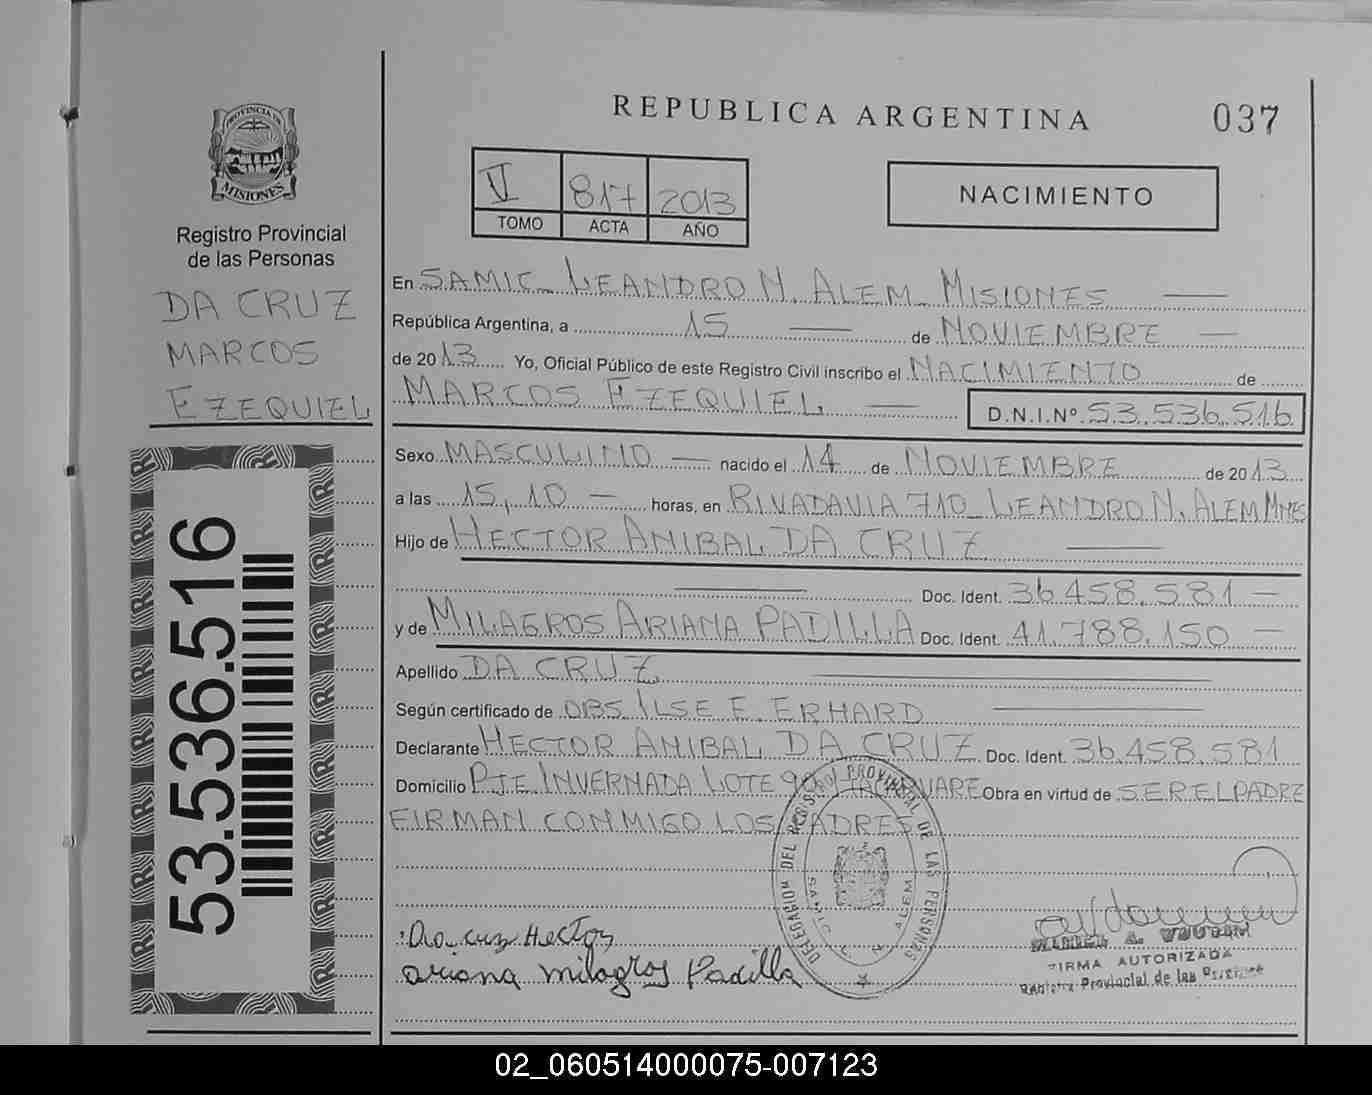 REPUBLICA ARGENTINA
037
PROVINCIA DE
MISIONES
Registro Provincial
de las Personas
DA CRUZ
MARCOS
EZEQUIEL
53.536.516
V 817 2013
TOMO ACTA AÑO
NACIMIENTO
En SAMIC_ LEANDRO N. ALEM_ MISIONES
República Argentina, a 15 de NOVIEMBRE
de 2013 Yo, Oficial Público de este Registro Civil inscribo el NACIMIENTO de
MARCOS EZEQUIEL D.N.I.Nº 53.536.516
Sexo MASCULINO nacido el 14 de NOVIEMBRE de 2013
a las 15,10 horas, en RIVADAVIA 710_ LEANDRO N. ALEM MNES
Hijo de HECTOR ANIBAL DA CRUZ
Doc. Ident. 36.458.581
y de MILAGROS ARIANA PADILLA Doc. Ident. 41.788.150
Apellido DA CRUZ
Según certificado de OBS. ILSE E. ERHARD
Declarante HECTOR ANIBAL DA CRUZ Doc. Ident. 36.458.581
Domicilio PJE INVERNADA LOTE 90 Obra en virtud de SER EL PADRE
FIRMAN CONMIGO LOS PADRES
DELEGACION DEL REGISTRO PROVINCIAL DE LAS PERSONAS
SAMIC L. N. ALEM
Da cruz Hector
ariana milagros Padilla
A.
FIRMA AUTORIZADA
Registro Provincial de las Personas
02_060514000075-007123